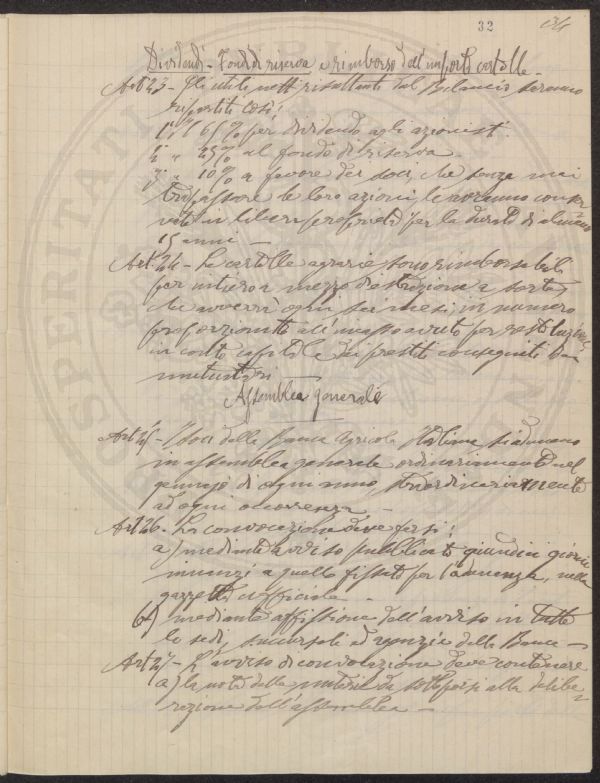 32 134
Dividendi - Fondo di riserva e rimborso dell'importo cartelle
Art. 23 - Gli utili netti risultanti dal Bilancio saranno
ripartiti così:
1° il 65% per dividendo agli azionisti.
2° " 25% al fondo di riserva
3° " 10% a favore dei soci, che senza mai
trapassare le loro azioni, le avranno conser
vate in libera proprietà per la durata di almeno
15 anni -
Art. 24 - Le cartelle agrarie sono rimborsabili
per intiero a mezzo d'estrazione a sorte
che avverrà ogni sei mesi, in numero
proporzionato all'incasso avuto per restituzione
in conto capitale dei prestiti conseguiti dai
mutuatari
Assemblea generale
Art. 25 - I soci della Banca Agricola Italiana si adunano
in assemblea generale ordinariamente nel
gennaio di ogni anno, straordinariamente
ad ogni occorrenza -
Art. 26 - La convocazione deve farsi:
a) mediante avviso pubblicato quindici giorni
innanzi a quello fissato per l'adunanza, nella
gazzetta ufficiale -
b) mediante affissione dell'avviso in tutte
le sedi, succursali ed agenzie della Banca -
Art. 27 - L'avviso di convocazione deve contenere
a) la nota delle materie da sottoporsi alla delibe=
razione dell'assemblea -